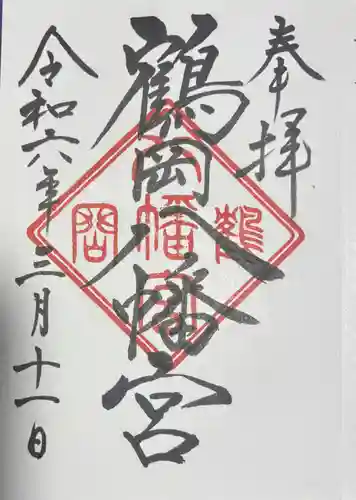 奉拝
鶴岡八幡宮
令和六年三月十一日
鶴
八幡宮
岡